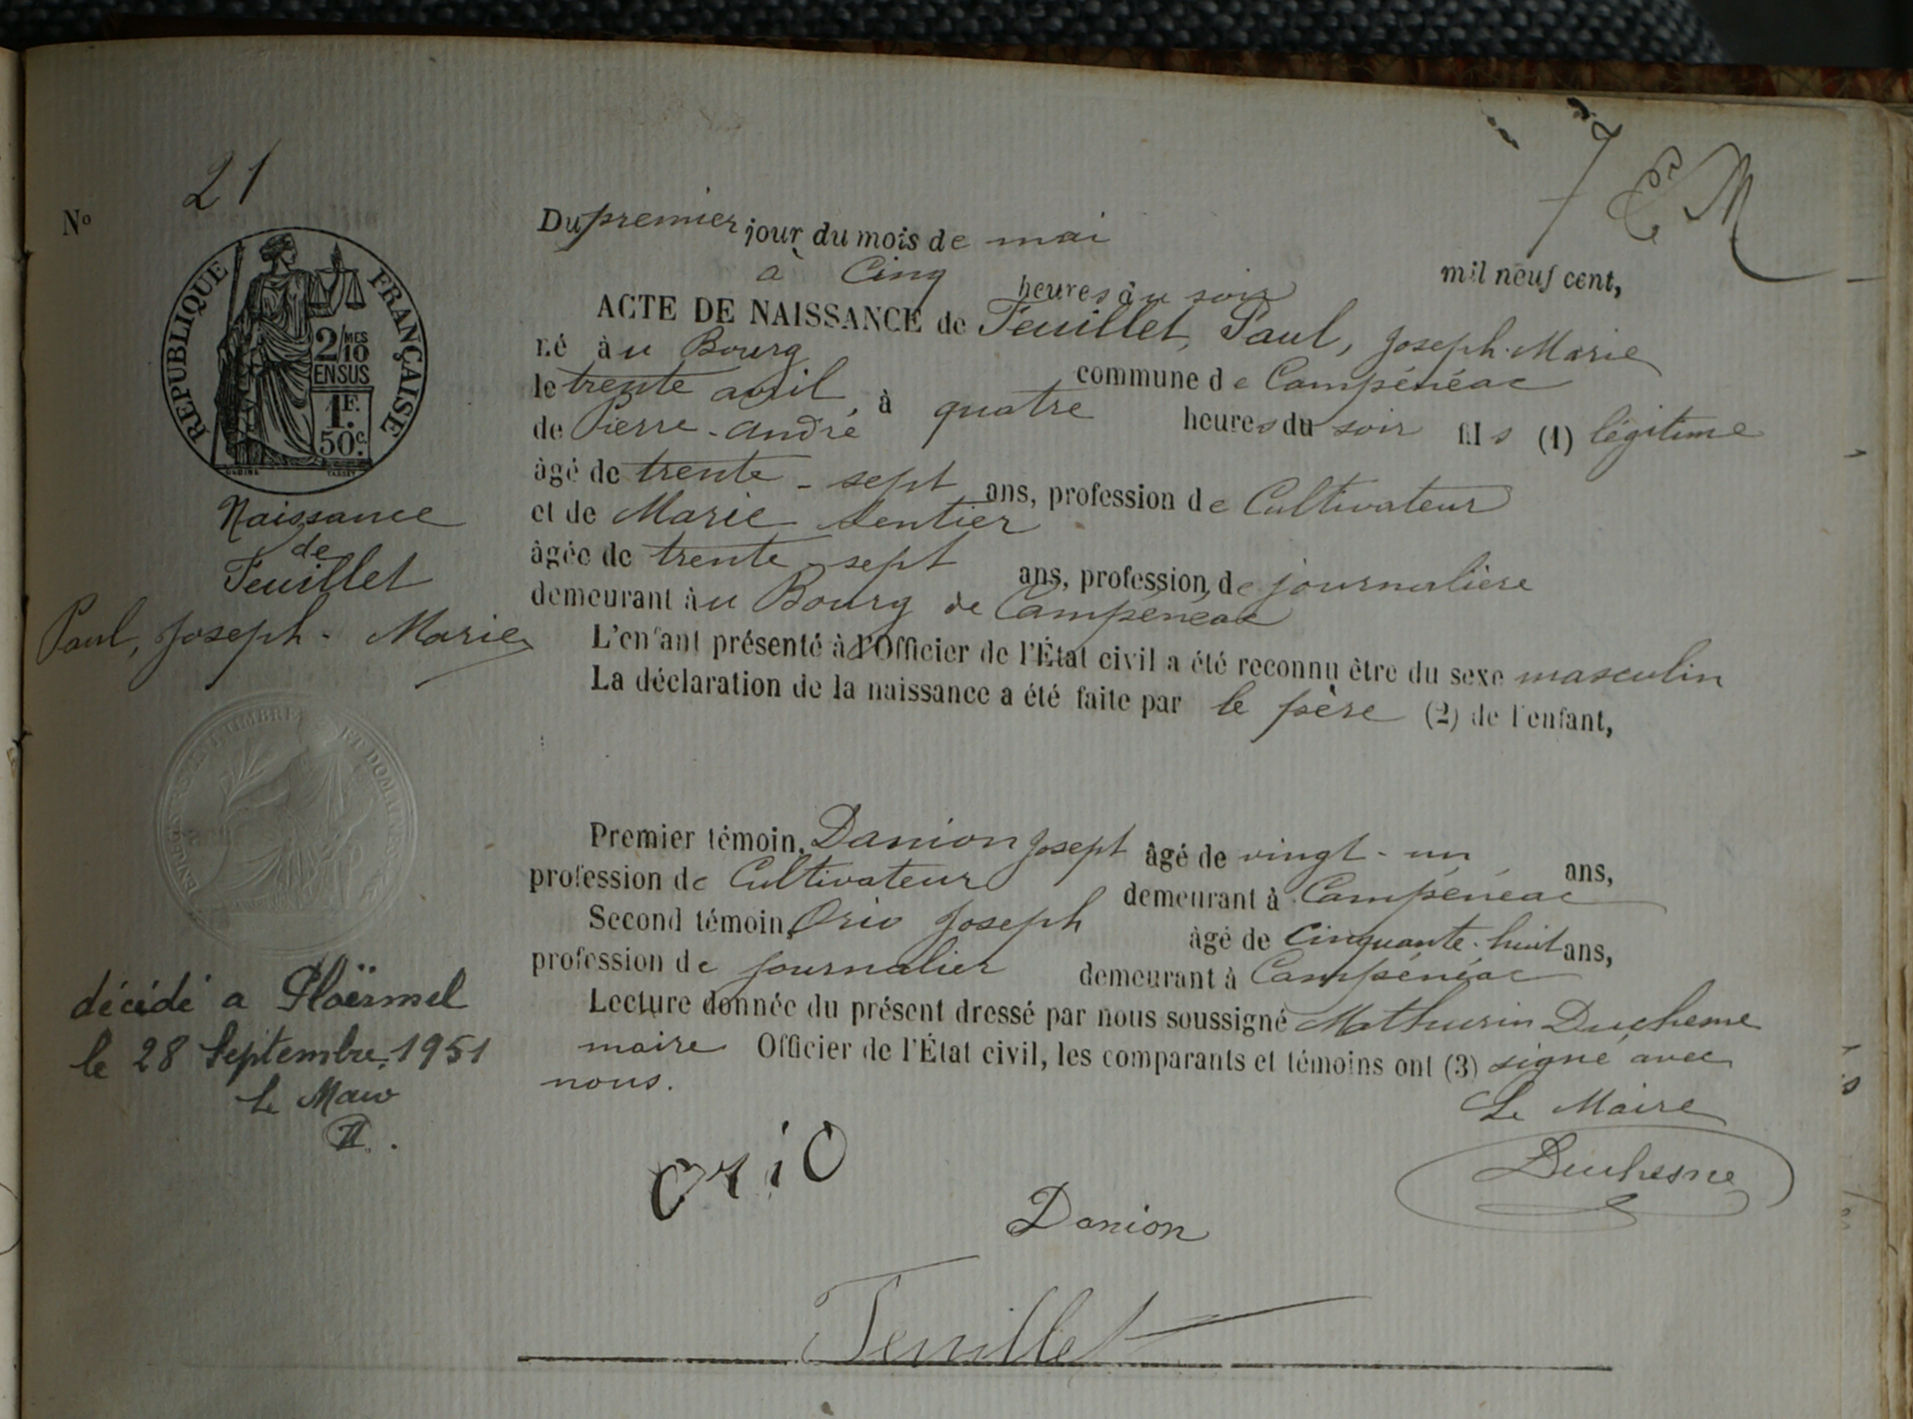 N° 21
RÉPUBLIQUE FRANÇAISE
2/10 MES
EN SUS
1F.
50c.
Naissance
de
Feuillet
Paul, Joseph-Marie
décédé a Ploërmel
le 28 Septembre 1951
7 M
Du premier jour du mois de mai mil neuf cent,
à Cinq heures du soir
ACTE DE NAISSANCE de Feuillet, Paul, Joseph-Marie
né au Bourg commune de Campénéac
le trente avril, à quatre heures du soir fils (1) légitime
de Pierre-André
âgé de trente-sept ans, profession de Cultivateur
et de Marie Sentier
âgée de trente-sept ans, profession de journalière
demeurant au Bourg de Campénéac
L'enfant présenté à l'Officier de l'État civil a été reconnu être du sexe masculin
La déclaration de la naissance a été faite par le père (2) de l'enfant,
Premier témoin, Danion Joseph âgé de vingt-un ans,
profession de Cultivateur demeurant à Campénéac
Second témoin, Orio Joseph âgé de Cinquante-huit ans,
profession de journalier demeurant à Campénéac
Lecture donnée du présent dressé par nous soussigné Mathurin Duchesne
maire Officier de l'État civil, les comparants et témoins ont (3) signé avec
nous.
Le Maire
Duchesne
orio
Danion
Feuillet